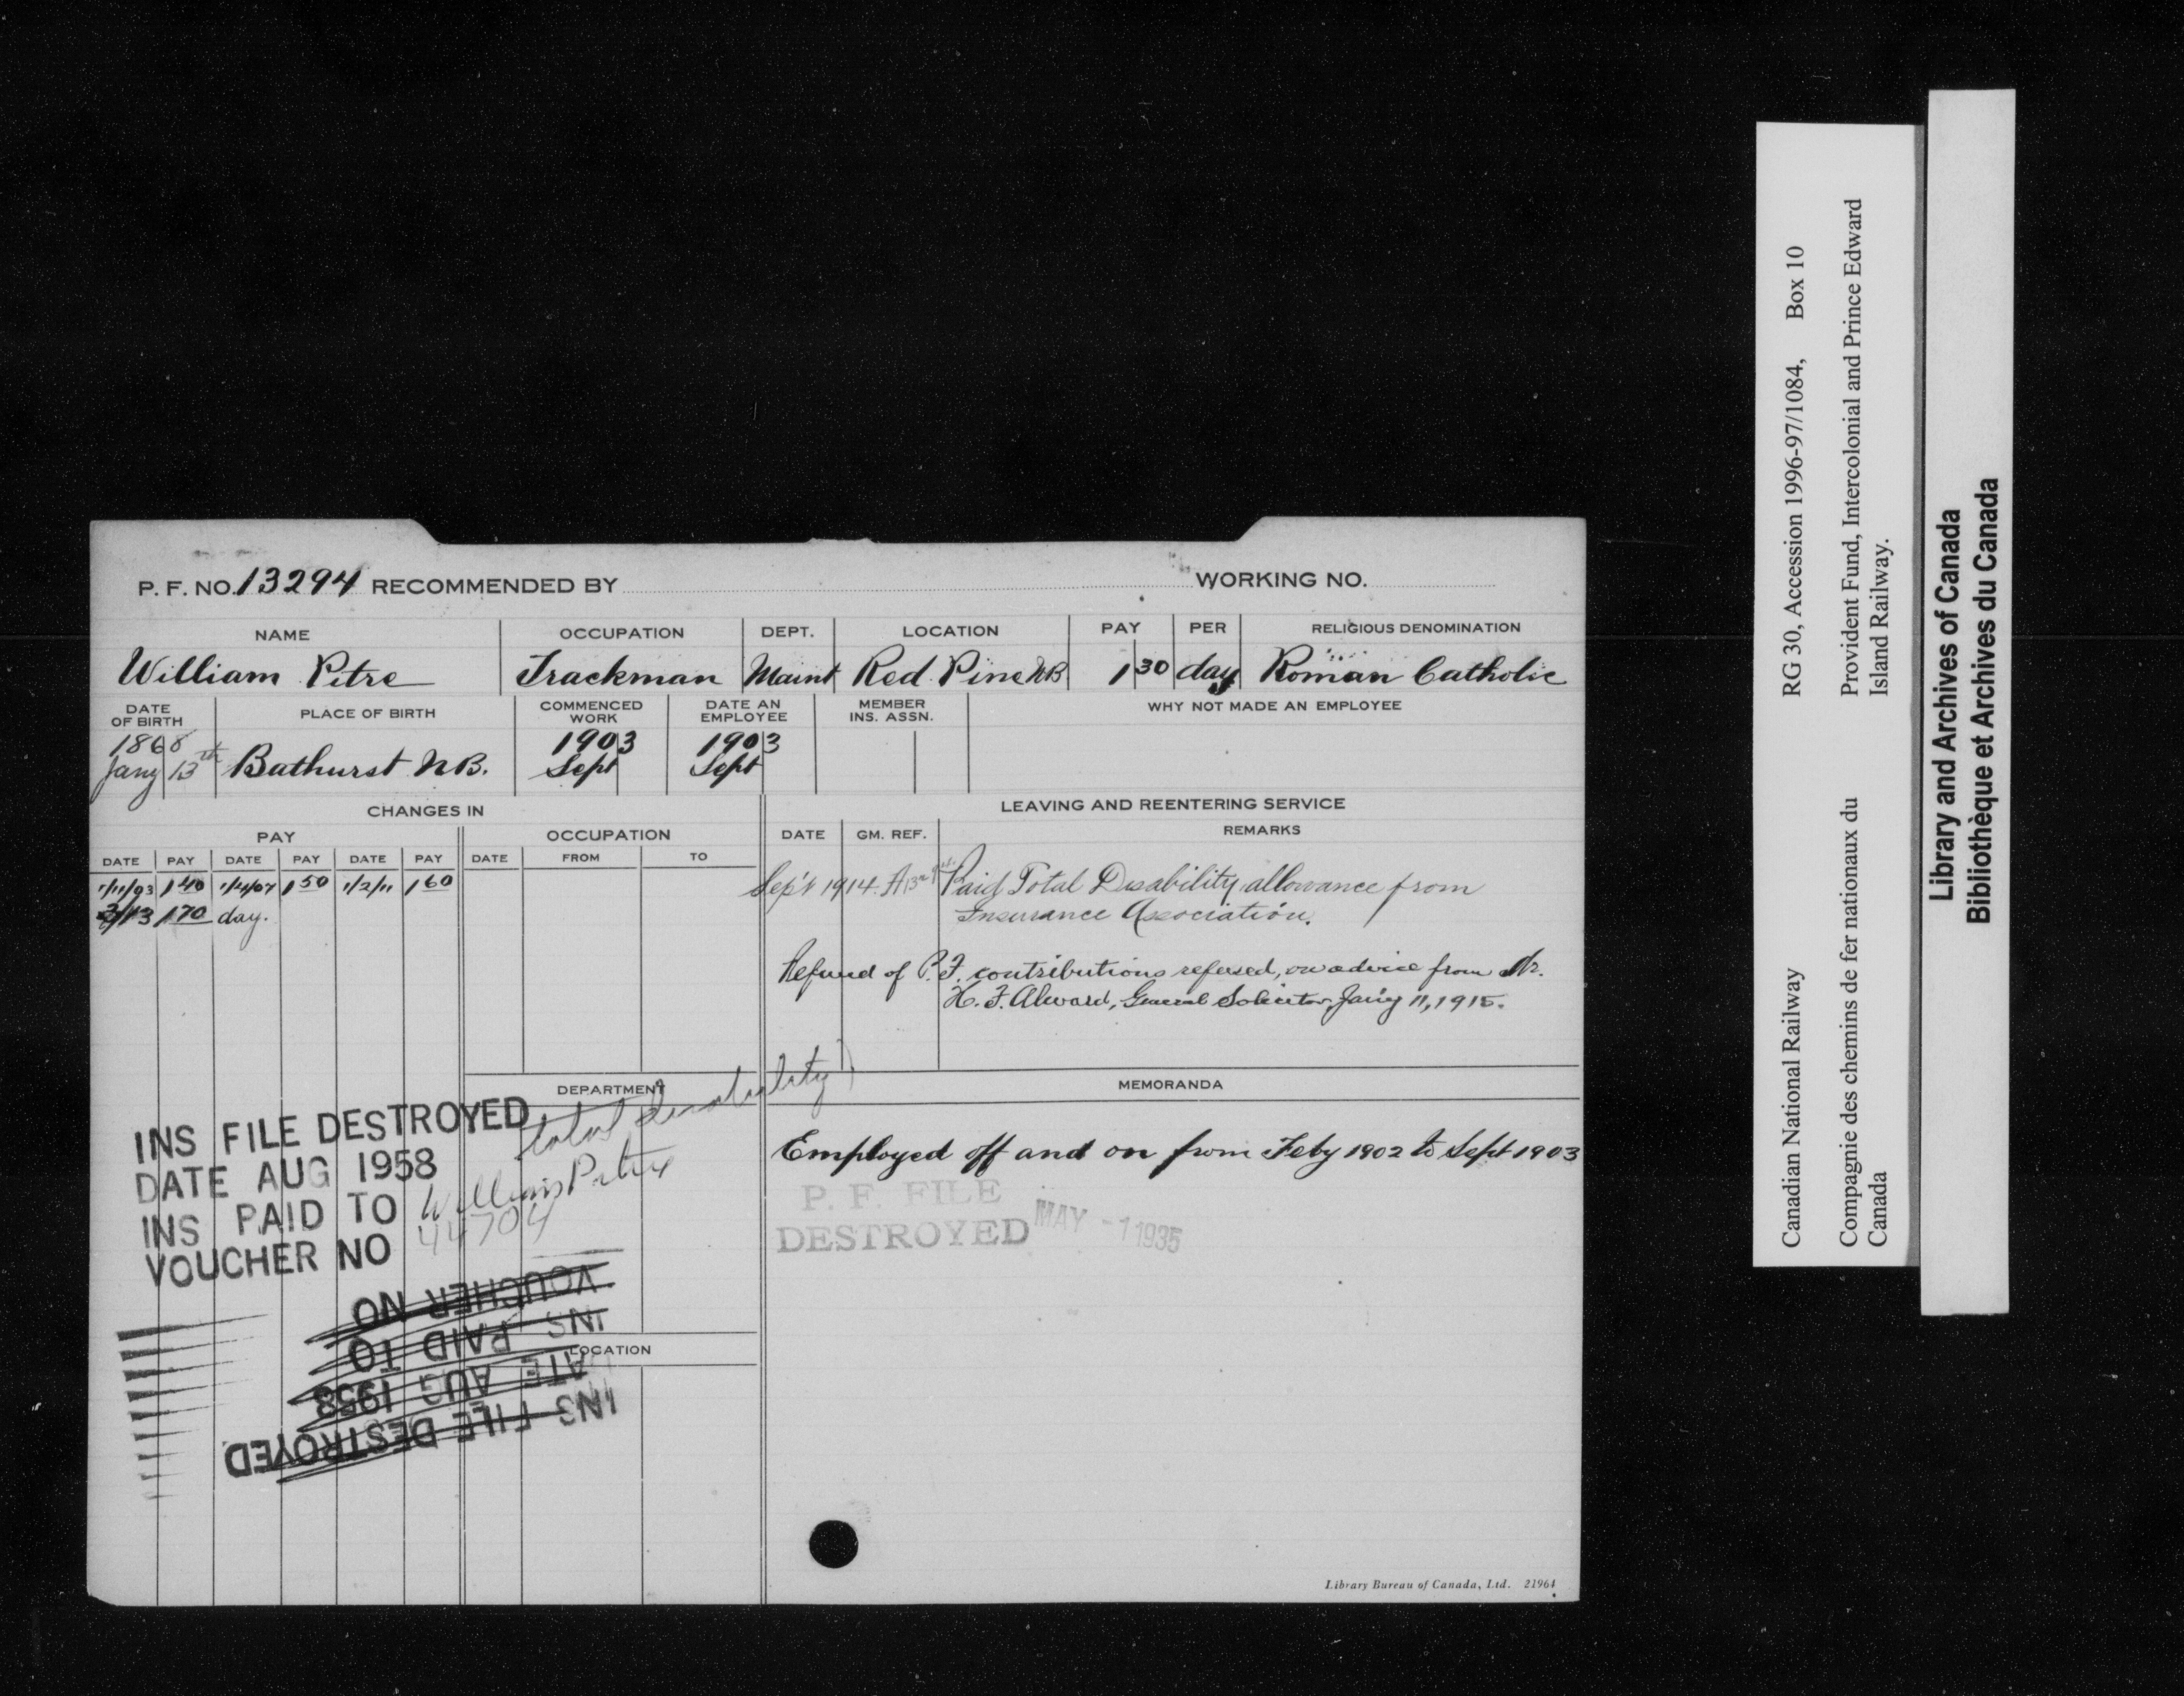 P. F. NO. 13294 RECOMMENDED BY WORKING NO.
NAME OCCUPATION DEPT. LOCATION PAY PER RELIGIOUS DENOMINATION
William Pitre Trackman Maint Red Pine NB 1 30 day Roman Catholic
DATE OF BIRTH PLACE OF BIRTH COMMENCED WORK DATE AN EMPLOYEE MEMBER INS. ASSN. WHY NOT MADE AN EMPLOYEE
1868 1903 1903
Jany 13th Bathurst N.B. Sept Sept
CHANGES IN LEAVING AND REENTERING SERVICE
PAY OCCUPATION DATE GM. REF. REMARKS
DATE PAY DATE PAY DATE PAY DATE FROM TO
1/11/03 1 40 1/4/07 1 50 1/2/11 1 60
/13 1 70 day.
Sep't 1914. Paid Total Disability allowance from
Insurance Association.
Refund of P.F. contributions refused, on advice from Mr.
H. F. Alward, General Solicitor, Jan'y 11, 1915.
DEPARTMENT MEMORANDA
total disability
Employed off and on from Feby 1902 to Sept 1903
INS FILE DESTROYED
DATE AUG 1958
INS PAID TO William Pitre
VOUCHER NO 44704
P. F. FILE
DESTROYED MAY -1 1935
VOUCHER NO
INS PAID TO
LOCATION
DATE AUG 1958
INS FILE DESTROYED
Library Bureau of Canada, Ltd. 21964
Canadian National Railway RG 30, Accession 1996-97/1084, Box 10
Compagnie des chemins de fer nationaux du Provident Fund, Intercolonial and Prince Edward
Canada Island Railway.
Library and Archives of Canada
Bibliothèque et Archives du Canada